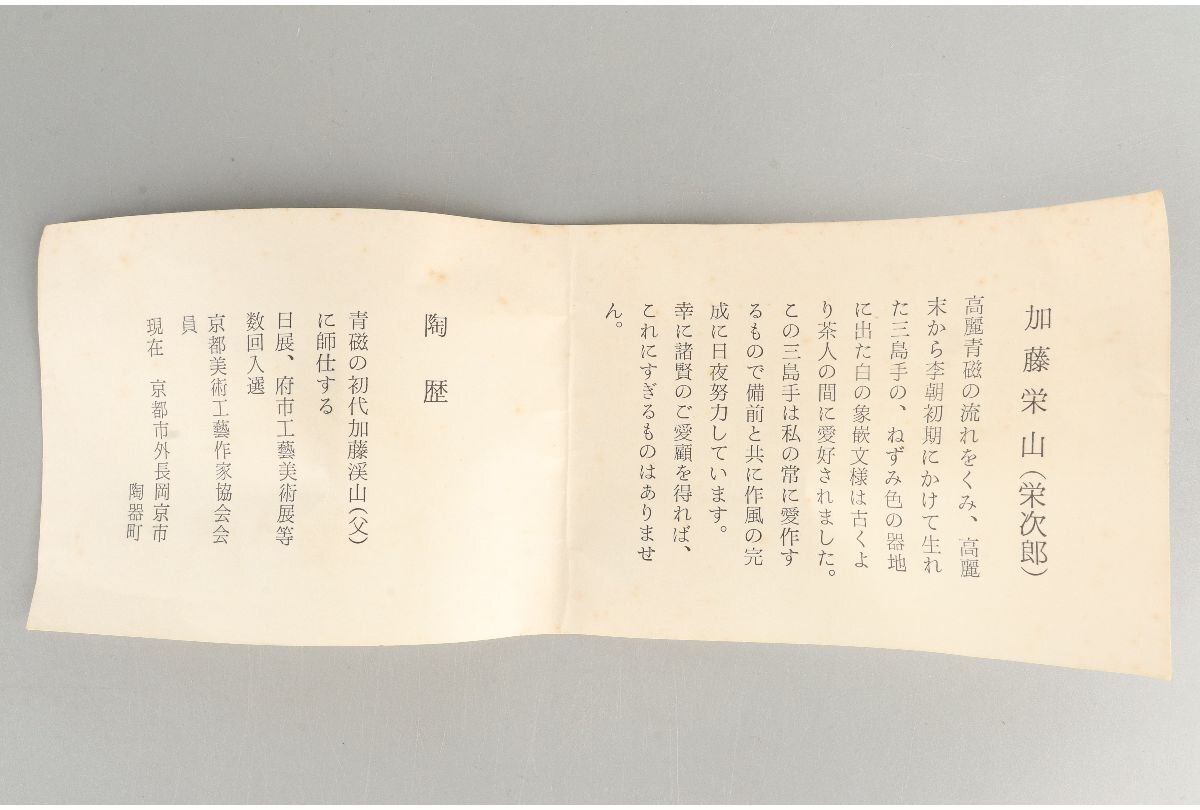 加藤栄山（栄次郎）
高麗青磁の流れをくみ、高麗
末から李朝初期にかけて生れ
た三島手の、ねずみ色の器地
に出た白の象嵌文様は古くよ
り茶人の間に愛好されました。
この三島手は私の常に愛作す
るもので備前と共に作風の完
成に日夜努力しています。
幸に諸賢のご愛顧を得れば、
これにすぎるものはありませ
ん。
陶歴
青磁の初代加藤渓山（父）
に師仕する
日展、府市工藝美術展等
数回入選
京都美術工藝作家協会会
員
現在　京都市外長岡京市
陶器町